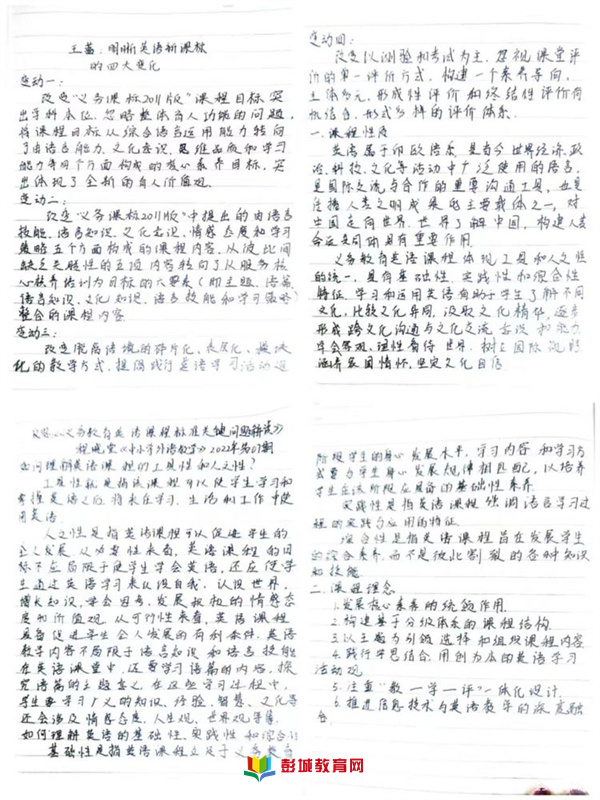 王蔷：明晰英语新课标
的四大变化
变动一：
改变"义务课标2011版"课程目标突
出学科本位，忽略整体育人功能的问题，
将课程目标从综合语言运用能力转向
了由语言能力、文化意识、思维品质和学习
能力等四个方面构成的核心素养目标，突
出体现了全新的育人价值观。
变动二：
改变"义务课标2011版"中提出的由语言
技能、语言知识、文化意识、情感态度和学习
策略五个方面构成的课程内容，从彼此间
缺乏关联性的五项内容转向了从服务核
心素养培训为目标的六要素（即主题、语篇、
语言知识、文化知识、语言技能和学习策略）
整合的课程内容
变动三：
改变脱离语境的碎片化、表层化、模块
化的教学方式，提倡践行英语学习活动观
变动四：
改变以测验和考试为主，忽视课堂评
价的单一评价方式，构建一个素养导向、
主体多元，形成性评价和终结性评价有
机结合，形式多样的评价体系.
一.课程性质
英语属于印欧语系，是当今世界经济、政
治、科技、文化等活动中广泛使用的语言，
是国际交流与合作的重要沟通工具，也是
传播人类文明成果的主要载体之一，对
中国走向世界、世界了解中国，构建人类
命运共同体具有重要作用.
义务教育英语课程体现工具和人文性
的统一，具有基础性、实践性和综合性
特征。学习和运用英语有助于学生了解不同
文化，比较文化异同，汲取文化精华，逐步
形成跨文化沟通与文化交流意识和能力，
学会客观、理性看待世界，树立国际视野，
涵养家国情怀，坚定文化自信.
义务教育英语课程标准关键问题解读》
程晓堂《中小学外语教学》2022年第07期
如何理解英语课程的工具性和人文性？
工具性就是指该课程可以使学生学习和
掌握英语之后将来在学习、生活和工作中使
用英语.
人文性是指英语课程可以促进学生的
全人发展。从必要性来看，英语课程的目
标不应局限于使学生学会英语，还应使学
生通过英语学习来认识自我、认识世界，
增长知识，学会思考，发展积极的情感态
度和价值观。从可行性来看，英语课程
具备促进学生全人发展的有利条件，英语
教学内容不局限于语言知识和语言技能
在英语课堂中，还要学习语篇的内容，探
究语篇的主题意义，在这些学习过程中，
学生要学习广义的知识、经验、智慧、文化等
还会涉及情感态度、人生观、世界观等等
如何理解英语的基础性、实践性和综合性
基础性是指英语课程立足于义务教育
阶段学生的身心发展水平，学习内容和学习方
式要与学生身心发展规律相匹配，以培养
学生在该阶段应具备的基础性素养.
实践性是指英语课程强调语言学习过
程的实践与应用的特征.
综合性是指英语课程旨在发展学生
的综合素养，而不是彼此割裂的各种知识
和技能.
二.课程理念
1.发展核心素养的统领作用.
2.构建基于分级体系的课程结构.
3.以主题为引领选择和组织课程内容
4.践行学思结合、用创为本的英语学习
活动观
5.注重"教一学一评"一体化设计.
6.推进信息技术与英语教学的深度融
合.
彭城教育网